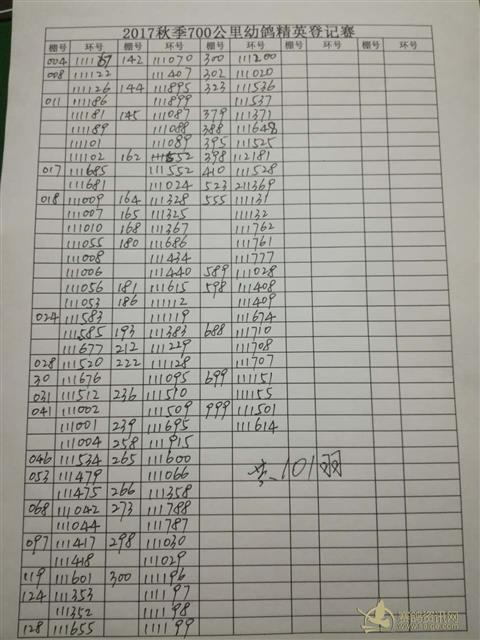 2017秋季700公里幼鸽精英登记赛
棚号 环号 棚号 环号 棚号 环号 棚号 环号 棚号 环号
004 111167 142 111070 300 111200
008 111122 111407 302 111020
111126 144 111895 323 111536
011 111186 111899 111537
111181 145 111087 379 111371
111189 111088 388 111648
111101 111089 395 111525
111102 162 111552 398 112181
017 111685 111552 410 111528
111681 111024 523 211369
018 111009 164 111328 555 111131
111007 165 111325 111132
111010 168 111367 111762
111055 180 111686 111761
111008 111434 111777
111006 111440 589 111028
111056 181 111615 598 111408
111053 186 111112 111409
024 111583 111119 111674
111585 193 111383 688 111710
111677 212 111229 111708
028 111520 222 111128 111707
30 111676 111095 699 111151
031 111512 236 111510 111155
041 111002 111509 999 111501
111001 239 111695 111614
111004 258 111915
046 111534 265 111600
053 111479 111066 101羽
111475 266 111358
068 111042 273 111788
111044 111787
097 111417 298 111030
111418 111029
119 111601 300 111196
124 111353 111197
111352 111198
128 111655 111199
赛鸽资讯网